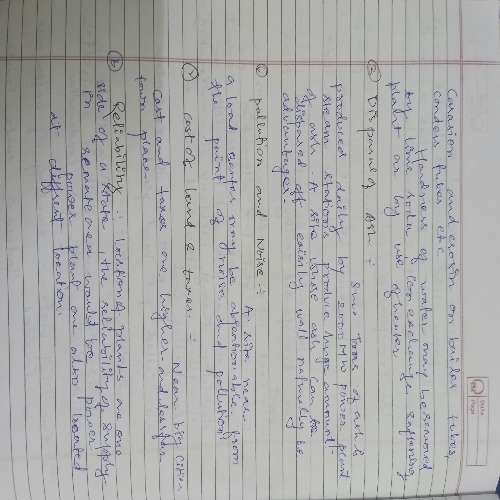 Date
Page
Corrosion and erosion on boiler tubes,
condenser tubes etc
Hardness of water may be removed
by lime soda, ion exchange softening
plant or by use of heater.
Disposal of Ash :-
5000 Tons of ash is
produced daily by 2000 MW power plant
steam stations produce huge amount
of ash. A site where ash can be
disposed off easily will naturally be
advantages.
pollution and Noise :-
A site near
a load center may be objectionable from
the point of noise and pollution
cost of land & taxes. :-
Near big cities
cost and taxes are higher and lesser
town place.
Reliability :- location of plants are one
side of a state, the reliability of supply
in remote area would be power
power plant are also located
at different location.